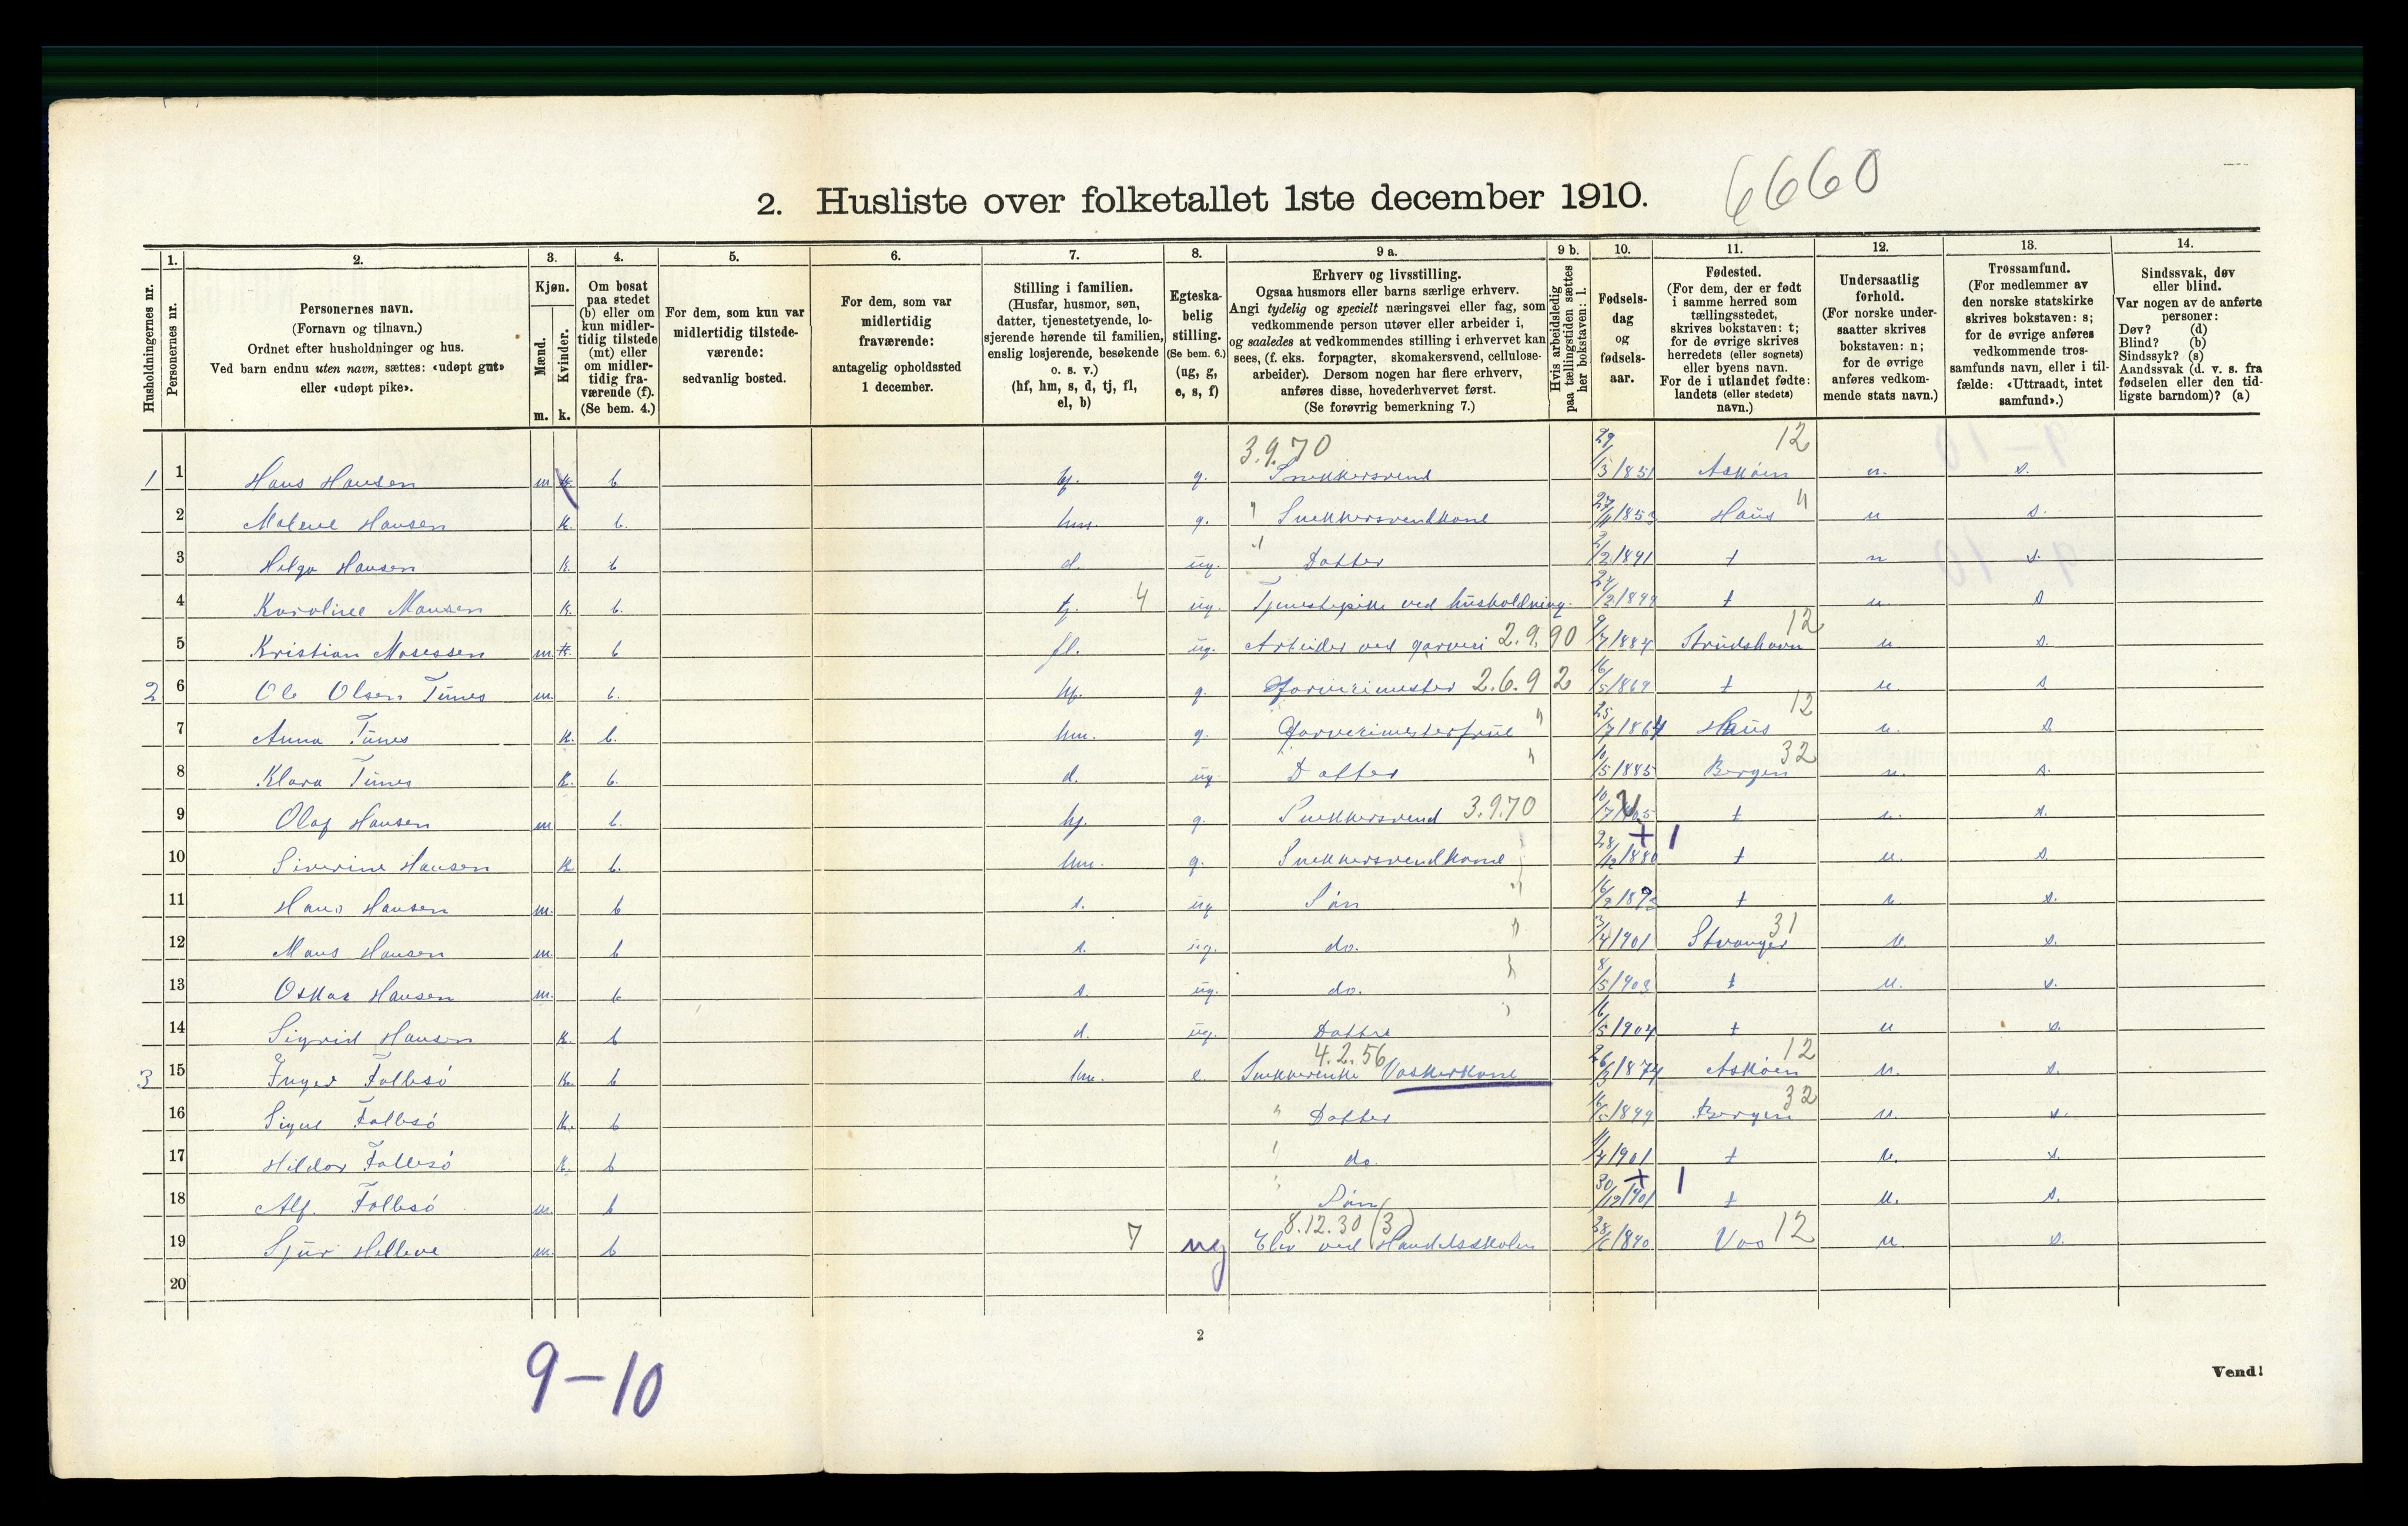 2. Husliste over folketallet 1ste december 1910. 6660
Husholdningernes nr.
1. Personernes nr.
2. Personernes navn. (Fornavn og tilnavn.) Ordnet efter husholdninger og hus. Ved barn endnu uten navn, sættes: «udøpt gut» eller «udøpt pike».
3. Kjøn. Mænd. m. Kvinder. k.
4. Om bosat paa stedet (b) eller om kun midlertidig tilstede (mt) eller om midlertidig fraværende (f). (Se bem. 4.)
5. For dem, som kun var midlertidig tilstedeværende: sedvanlig bosted.
6. For dem, som var midlertidig fraværende: antagelig opholdssted 1 december.
7. Stilling i familien. (Husfar, husmor, søn, datter, tjenestetyende, losjerende hørende til familien, enslig losjerende, besøkende o. s. v.) (hf, hm, s, d, tj, fl, el, b)
8. Egteskabelig stilling. (Se bem. 6.) (ug, g, e, s, f)
9 a. Erhverv og livsstilling. Ogsaa husmors eller barns særlige erhverv. Angi tydelig og specielt næringsvei eller fag, som vedkommende person utøver eller arbeider i, og saaledes at vedkommendes stilling i erhvervet kan sees, (f. eks. forpagter, skomakersvend, cellulosearbeider). Dersom nogen har flere erhverv, anføres disse, hovederhvervet først. (Se forøvrig bemerkning 7.)
9 b. Hvis arbeidsledig paa tællingstiden sættes her bokstaven: l.
10. Fødselsdag og fødselsaar.
11. Fødested. (For dem, der er født i samme herred som tællingsstedet, skrives bokstaven: t; for de øvrige skrives herredets (eller sognets) eller byens navn. For de i utlandet fødte: landets (eller stedets) navn.)
12. Undersaatlig forhold. (For norske undersaatter skrives bokstaven: n; for de øvrige anføres vedkommende stats navn.)
13. Trossamfund. (For medlemmer av den norske statskirke skrives bokstaven: s; for de øvrige anføres vedkommende trossamfunds navn, eller i tilfælde: «Uttraadt, intet samfund».)
14. Sindssvak, døv eller blind. Var nogen av de anførte personer: Døv? (d) Blind? (b) Sindssyk? (s) Aandssvak (d. v. s. fra fødselen eller den tidligste barndom)? (a)
3.9.70 12
1 1 Hans Hansen m b hf. g. Snekkersvend 29/3 1851 Askøen n. s.
2 Malene Hansen k. b. hm. g. " Snekkersvendkone 27/11 1853 Haus " n s.
3 Helga Hansen k. b d. ug. " Datter 2/2 1891 t n s.
4 Karoline Mansen k. b. tj. 4 ug. Tjenestepike ved husholdning. 24/2 1894 t n. s
5 Kristian Mosessen m. b fl. ug. Arbeider ved garveri 2.9.90 9/7 1884 Strudshavn 12 n s.
2 6 Ole Olsen Tunes m. b. hf. g. Garverimester 2.6.92 16/5 1869 t n. s
7 Anna Tunes k. b. hm. g. Garverimesterfrue " 25/7 1864 Haus 12 n. s
8 Klara Tunes k. b. d. ug. Datter " 10/5 1885 Bergen 32 n. s.
9 Olaf Hansen m b. hf. g. Snekkersvend 3.9.70 10/7 t n. s.
10 Siverine Hansen k b. hm. g. Snekkersvendkone 28/12 1880 + 1 t n. s.
11 Hans Hansen m. b s. ug Søn " 16/2 t n s.
12 Mans Hansen m b s. ug. do. " 3/4 1901 Stvanger 31 n s.
13 Oskar Hansen m. b s. ug. do. " 8/5 1903 t n. s.
14 Sigrid Hansen k. b d. ug. Datter 16/5 1904 t n s.
4.2.56
3 15 Inger Follesø k. b hm. e. Snekkerenke Vaskerkone 26/3 1874 Askøen 12 n. s.
16 Signe Follesø k. b " Datter 16/5 1899 Bergen 32 n. s.
17 Hildor Follesø k. b do. 11/4 1901 t n. s.
18 Alf. Follesø m. b Søn 30/12 1901 + 1 t n. s.
8.12.30 (3)
19 Sjur Helleve m. b 7 ug Elev ved Handelsskolen 28/6 1890 Vos 12 n s.
20
2
9-10
Vend!